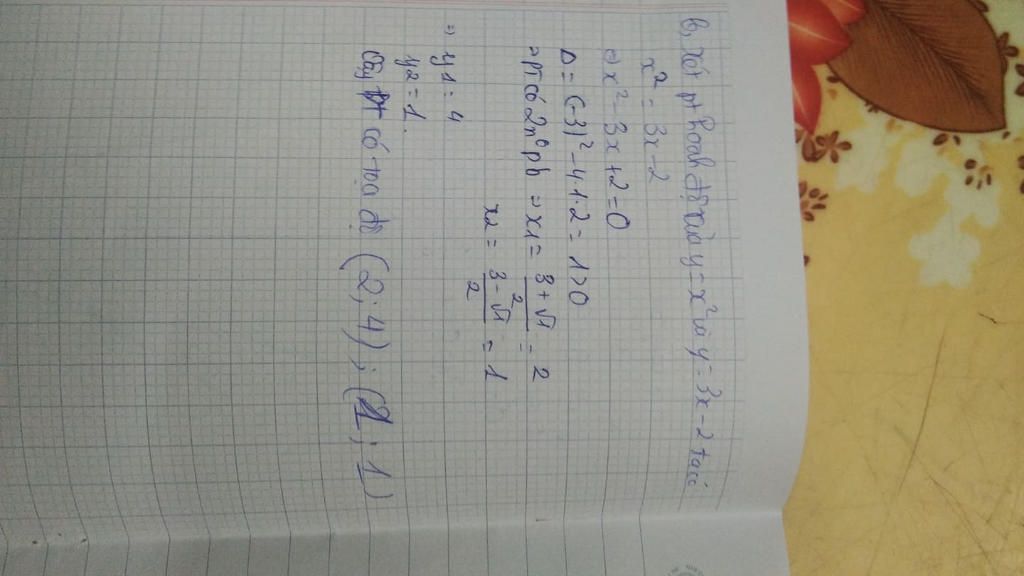 b, Xét pt hoành độ của y = x² và y = 3x - 2 ta có
x² = 3x - 2
(=) x² - 3x + 2 = 0
Δ = (-3)² - 4.1.2 = 1 > 0
=> pt có 2 n° pb => x1 = (3 + √1)/2 = 2
x2 = (3 - √1)/2 = 1
=> y1 = 4
y2 = 1.
Vậy pt có toạ độ (2; 4); (1; 1)